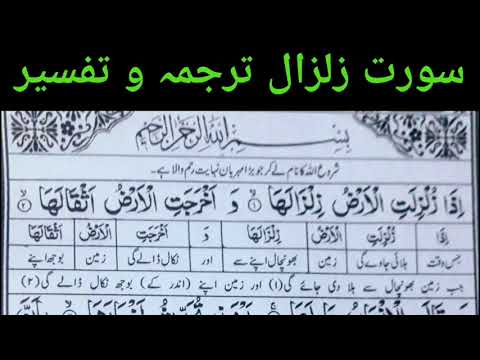 سورت زلزال ترجمہ و تفسیر
بِسْمِ اللهِ الرَّحْمٰنِ الرَّحِيْمِ
شروع اللہ کا نام لے کر جو بڑا مہربان نہایت رحم والا ہے۔
اِذَا زُلْزِلَتِ الْاَرْضُ زِلْزَالَهَا ۙ۝۱ وَ اَخْرَجَتِ الْاَرْضُ اَثْقَالَهَا ۙ۝۲
اِذَا زُلْزِلَتِ الْاَرْضُ زِلْزَالَهَا وَ اَخْرَجَتِ الْاَرْضُ اَثْقَالَهَا
جس وقت ہلائی جاوے گی زمین بھونچال اپنے سے اور نکال ڈالے گی زمین بوجھ اپنے
جب زمین بھونچال سے ہلا دی جائے گی (۱) اور زمین اپنے (اندر کے) بوجھ نکال ڈالے گی (۲)